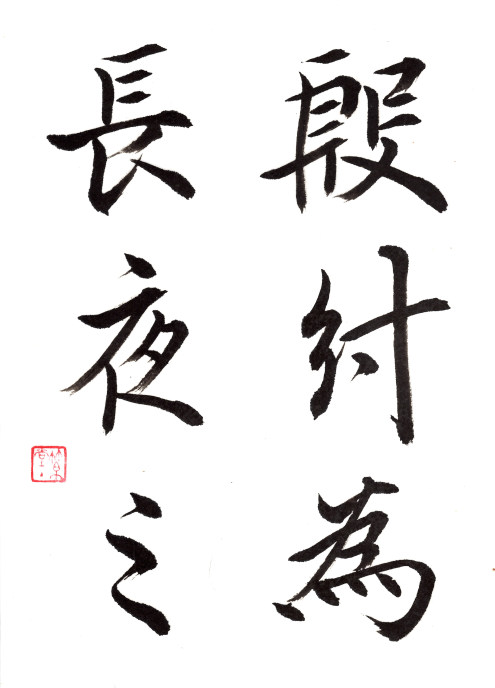 殷紂為
長夜之